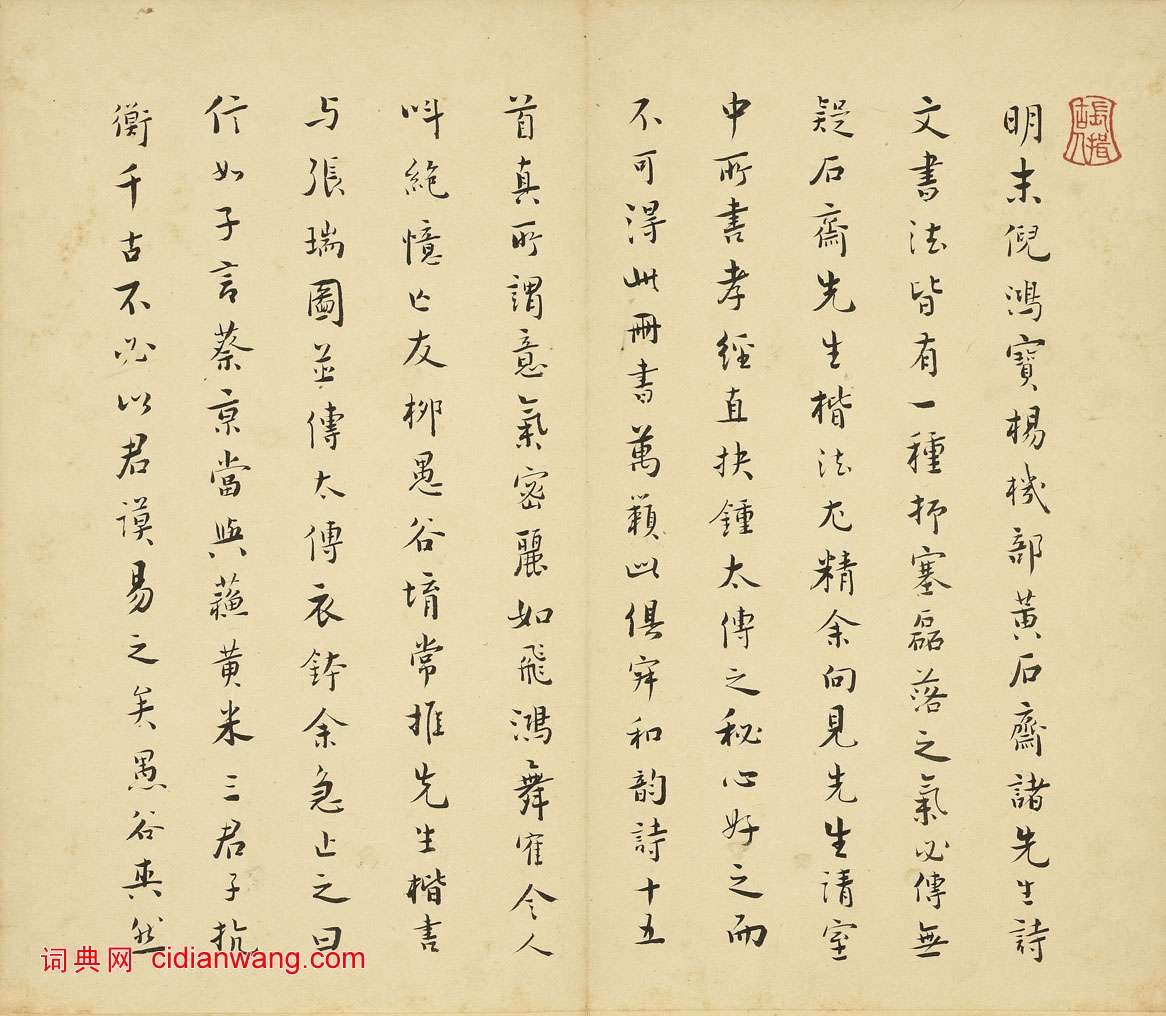 明末倪鴻寶楊機部黃石齋諸先生詩
文書法皆有一種抑塞磊落之氣必傳無
疑石齋先生楷法尤精余向見先生請室
中所書孝經直抉鍾太傅之秘心好之而
不可得此冊書萬籟此俱寂和韵詩十五
首真所謂意氣密麗如飛鴻舞隺令人
叫絶憶亡友柳愚谷堉常推先生楷書
与張瑞圖並傳太傅衣鉢余急止之曰
信如子言蔡京當與蘓黄米三君子抗
衡千古不必以君謨易之矣愚谷爽然
詞典网 cidianwang.com